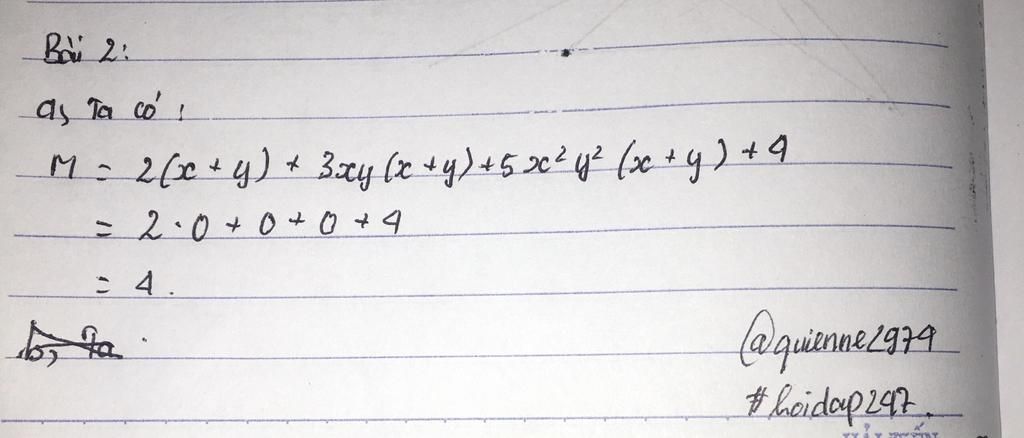 Bài 2:
a, Ta có:
M = 2(x + y) + 3xy(x + y) + 5x²y² (x + y) + 4
= 2 · 0 + 0 + 0 + 4
= 4.
b, Ta
@quienne2974
#hoidap247.